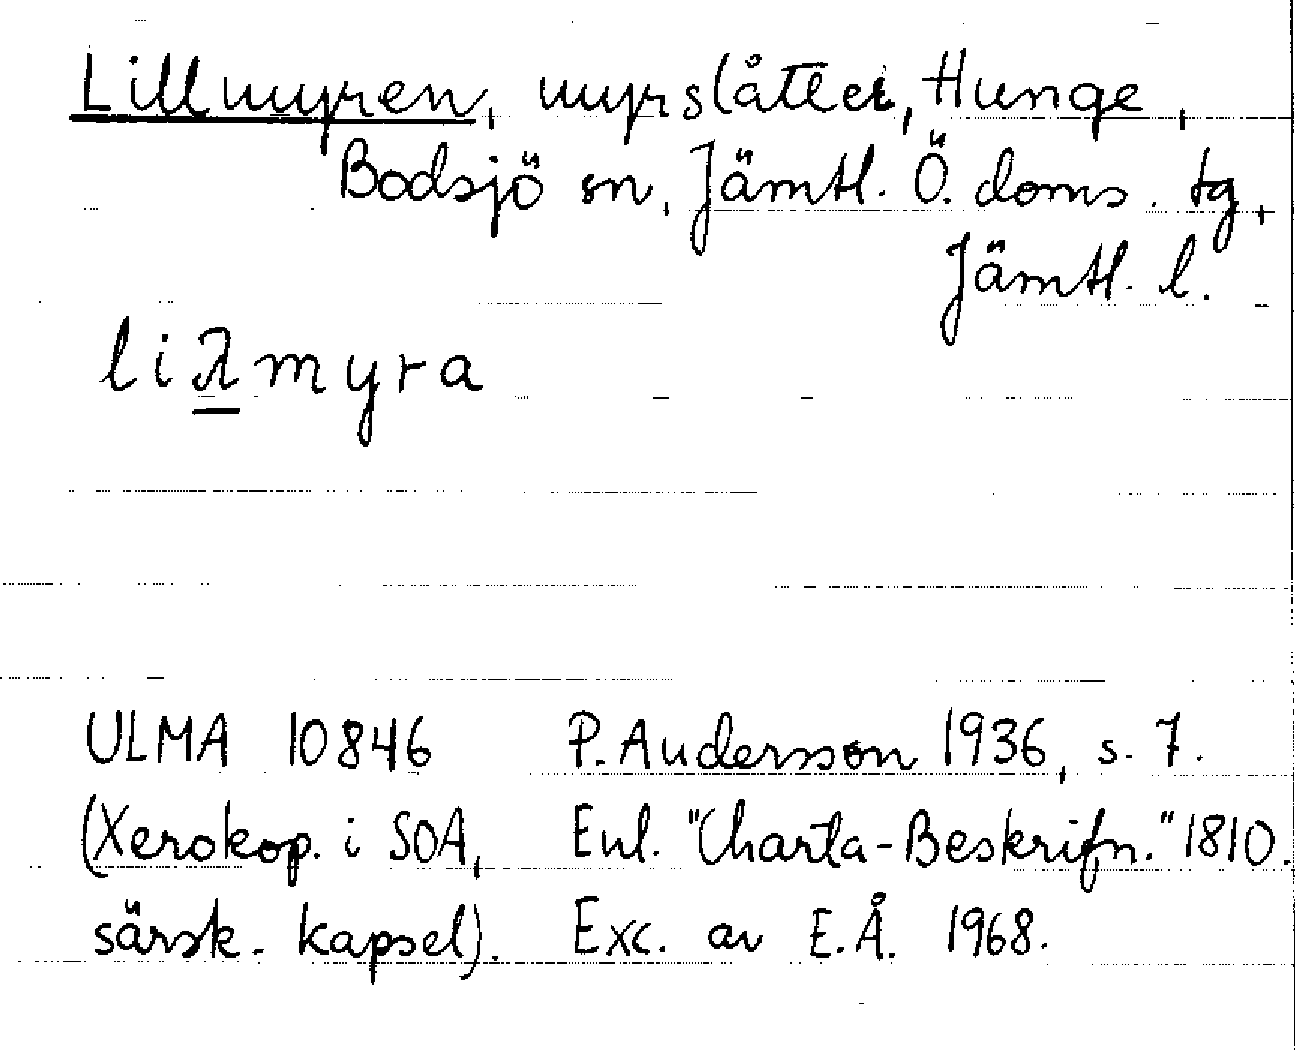 Lillmyren, myrslåtter, Hunge,
Bodsjö sn, Jämtl. Ö. doms. tg,
Jämtl. l.
liλmyra
ULMA 10846 P. Andersson 1936, s. 7.
(Xerokop. i SOA, Enl. "Charta-Beskrifn." 1810.
särsk. kapsel). Exc. av E.Å. 1968.